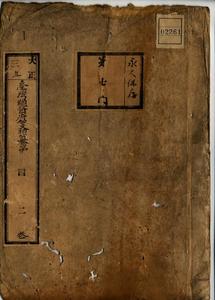 02261
永久保存
第七門
大正
三年
臺灣總督府公文類纂
四二卷